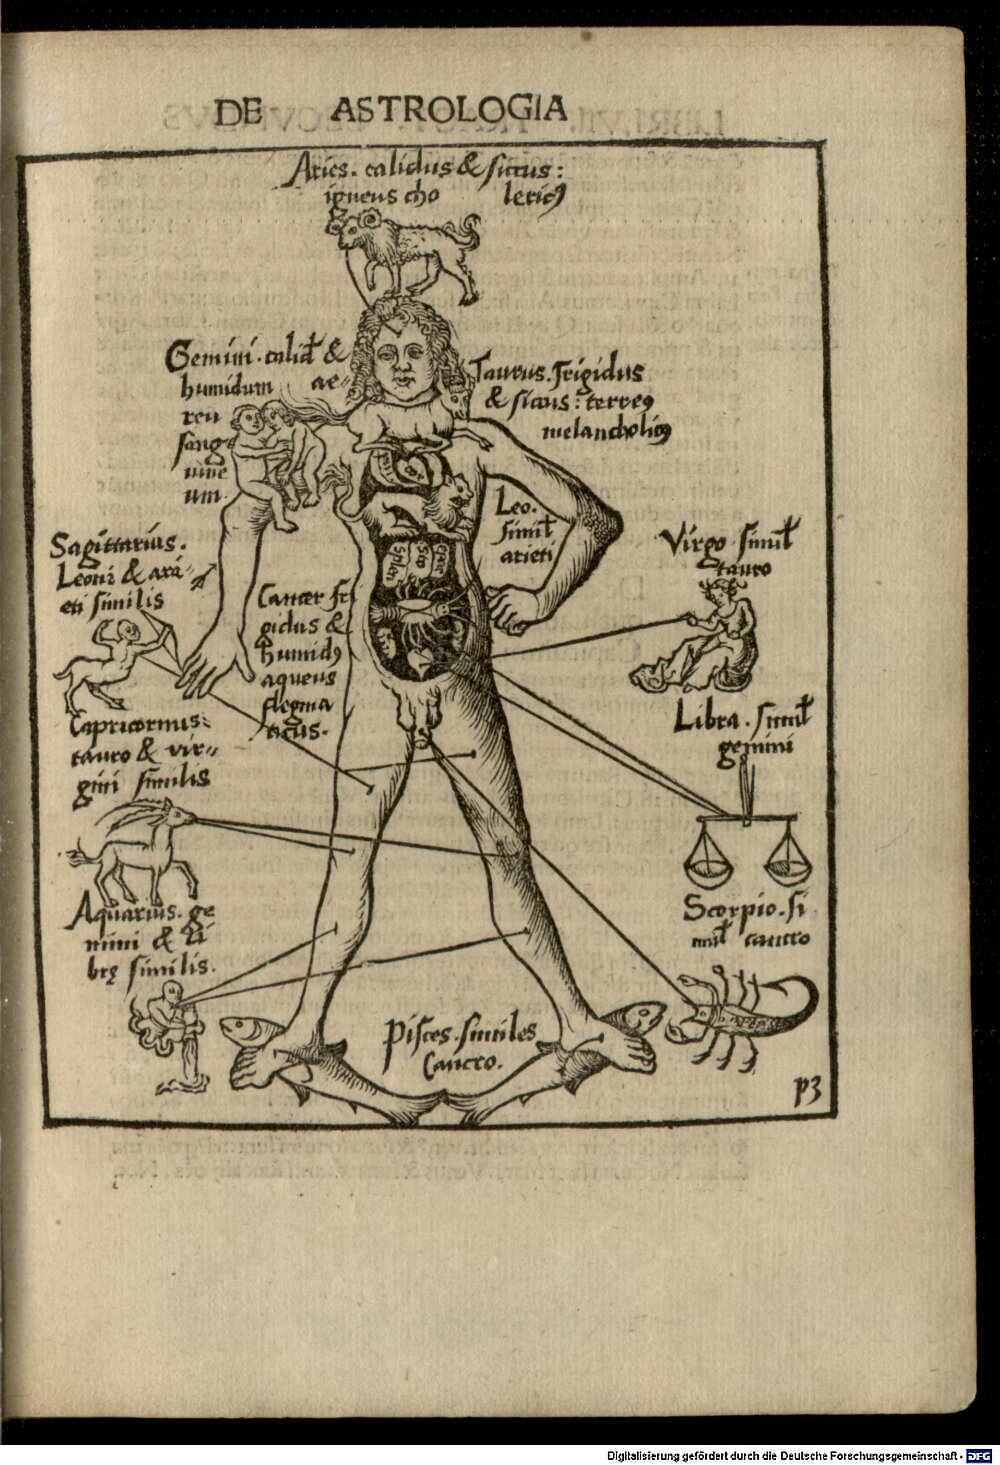 DE ASTROLOGIA
Aries. calidus & siccus:
igneus cho lericꝰ
Gemini. calid᷑ &
humidum ae-
reu
sang
uine
um.
Taurus. Frigidus
& siccus: terreꝰ
melancholicꝰ
Leo.
simil᷑
arieti
Virgo simil᷑
tauro
Sagittarius.
Leoni & ari-
eti similis
Cancer fri
gidus &
humidꝰ
aqueus
flegma
ticus.
splen
Capricornus:
tauro & vir-
gini similis
Libra. simil᷑
gemini
Aquarius. ge
mini & li
brę similis.
Scorpio. si
mil᷑ cancro
Pisces. similes
Cancro.
p3
Digitalisierung gefördert durch die Deutsche Forschungsgemeinschaft - DFG